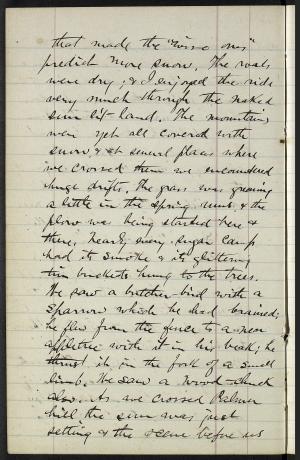 that made the "wise ones"
predict more snow. The roads
were dry, & I enjoyed the ride
very much through the naked
sun lit land. The mountains
were yet all covered with
snow, & at several places where
we crossed them we encountered
huge drifts. The grass was growing
a little in the spring runs, & the
plow was being started here &
there. Nearly every sugar camp
had its smoke & its glittering
tin buckets hung to the trees.
We saw a butcher-bird with a
sparrow which he had brained;
he flew from the fence to a near
appletree with it in his beak; he
thrust it in the fork of a small
limb. We saw a wood-chuck
also. As we crossed Palmer
hill the sun was just
setting & the scene before us